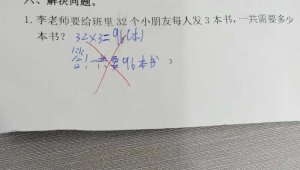 六、解决问题。
1. 李老师要给班里 32 个小朋友每人发 3 本书，一共需要多少
本书？ 32×3=96(本)
答：一共要96本书
3